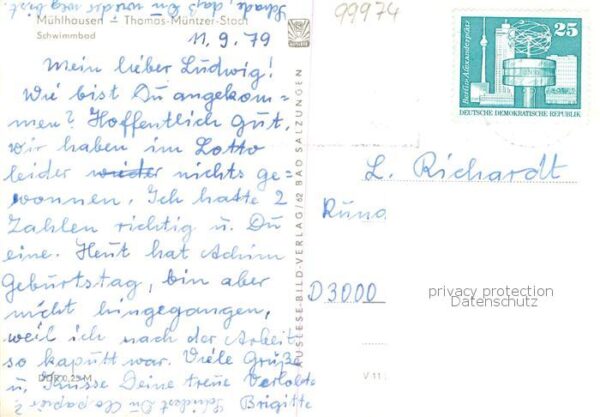 Schade, daß Du wieder weg bist.
Mühlhausen - Thomas-Müntzer-Stadt
Schwimmbad
11.9.79
Mein lieber Ludwig!
Wie bist Du angekom=
men? Hoffentlich gut,
wir haben im Lotto
leider wieder nichts ge=
wonnen. Ich hatte 2
Zahlen richtig u. Du
eine. Heut hat Achim
Geburtstag, bin aber
nicht hingegangen,
weil ich nach der Arbeit
so kaputt war. Viele Grüße
u. Küsse Deine treue Verlobte
Brigitte
Schickst Du Clopapier?
DDR 0,25 M
AUSLESE-BILD-VERLAG/62 BAD SALZUNGEN
99974
25
Berlin-Alexanderplatz
DEUTSCHE DEMOKRATISCHE REPUBLIK
L. Richardt
D 3000
privacy protection
Datenschutz
V 11